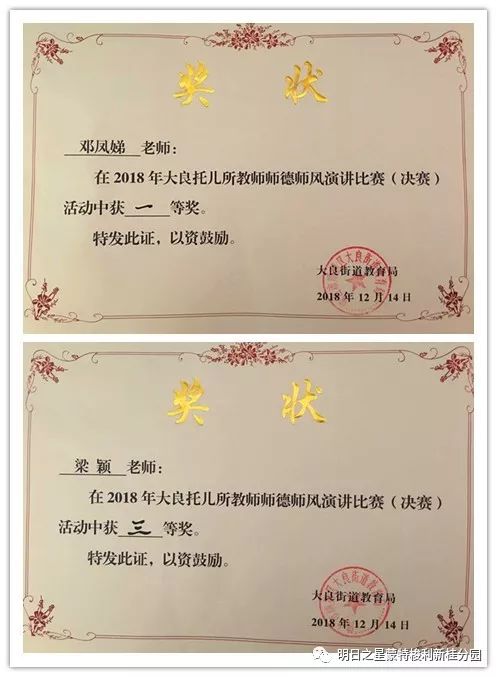 奖 状
邓凤娣 老师：
在2018年大良托儿所教师师德师风演讲比赛（决赛）
活动中获 一 等奖。
特发此证，以资鼓励。
大良街道教育局
2018年12月14日
奖 状
梁 颖 老师：
在2018年大良托儿所教师师德师风演讲比赛（决赛）
活动中获 三 等奖。
特发此证，以资鼓励。
大良街道教育局
2018年12月14日
明日之星蒙特梭利新桂分园